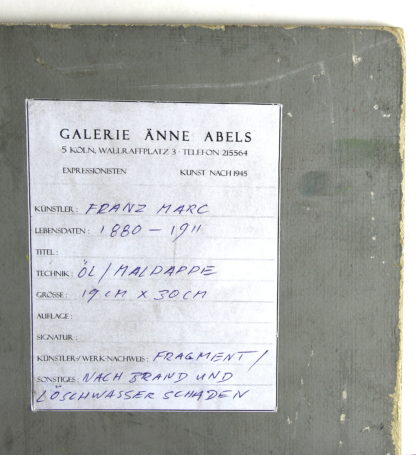 GALERIE ÄNNE ABELS
5 KÖLN, WALLRAFFPLATZ 3 · TELEFON 215564
EXPRESSIONISTEN KUNST NACH 1945
KÜNSTLER: FRANZ MARC
LEBENSDATEN: 1880 – 1911
TITEL:
TECHNIK: ÖL/MALPAPPE
GRÖSSE: 19CM X 30CM
AUFLAGE:
SIGNATUR:
KÜNSTLER-/WERK-NACHWEIS: FRAGMENT/
SONSTIGES: NACH BRAND UND
LÖSCHWASSER SCHADEN